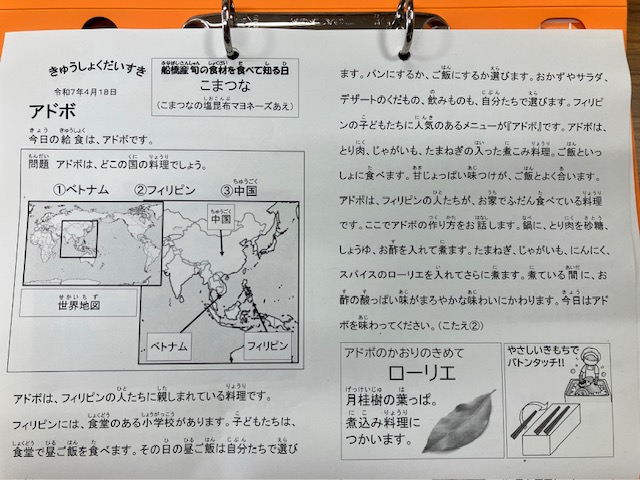 きゅうしょくだいすき
令和7年4月18日
アドボ
船橋産旬の食材を食べて知る日
こまつな
(こまつなの塩昆布マヨネーズあえ)
今日の給食は、アドボです。
問題 アドボは、どこの国の料理でしょう。
①ベトナム ②フィリピン ③中国
中国
世界地図
ベトナム
フィリピン
アドボは、フィリピンの人たちに親しまれている料理です。
フィリピンには、食堂のある小学校があります。子どもたちは、
食堂で昼ご飯を食べます。その日の昼ご飯は自分たちで選び
ます。パンにするか、ご飯にするか選びます。おかずやサラダ、
デザートのくだもの、飲みものも、自分たちで選びます。フィリピ
ンの子どもたちに人気のあるメニューが『アドボ』です。アドボは、
とり肉、じゃがいも、たまねぎの入った煮こみ料理。ご飯といっ
しょに食べます。甘じょっぱい味つけが、ご飯とよく合います。
アドボは、フィリピンの人たちが、お家でふだん食べている料理
です。ここでアドボの作り方をお話します。鍋に、とり肉を砂糖、
しょうゆ、お酢を入れて煮ます。たまねぎ、じゃがいも、にんにく、
スパイスのローリエを入れてさらに煮ます。煮ている間に、お
酢の酸っぱい味がまろやかな味わいにかわります。今日はアド
ボを味わってください。(こたえ②)
アドボのかおりのきめて
ローリエ
月桂樹の葉っぱ。
煮込み料理に
つかいます。
やさしいきもちで
バトンタッチ!!